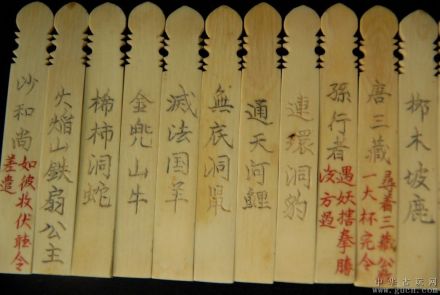 柳木坡鹿
唐三藏
尋着三藏公
一大杯完令
孫行者
遇妖搳拳勝
方過
連環洞豹
通天河鯉
無底洞鼠
滅法国羊
金兜山牛
稀柿洞蛇
火焰山鐵扇公主
沙和尚
如彼收伏聴令
差遣
中华古玩网
www.gucn.com